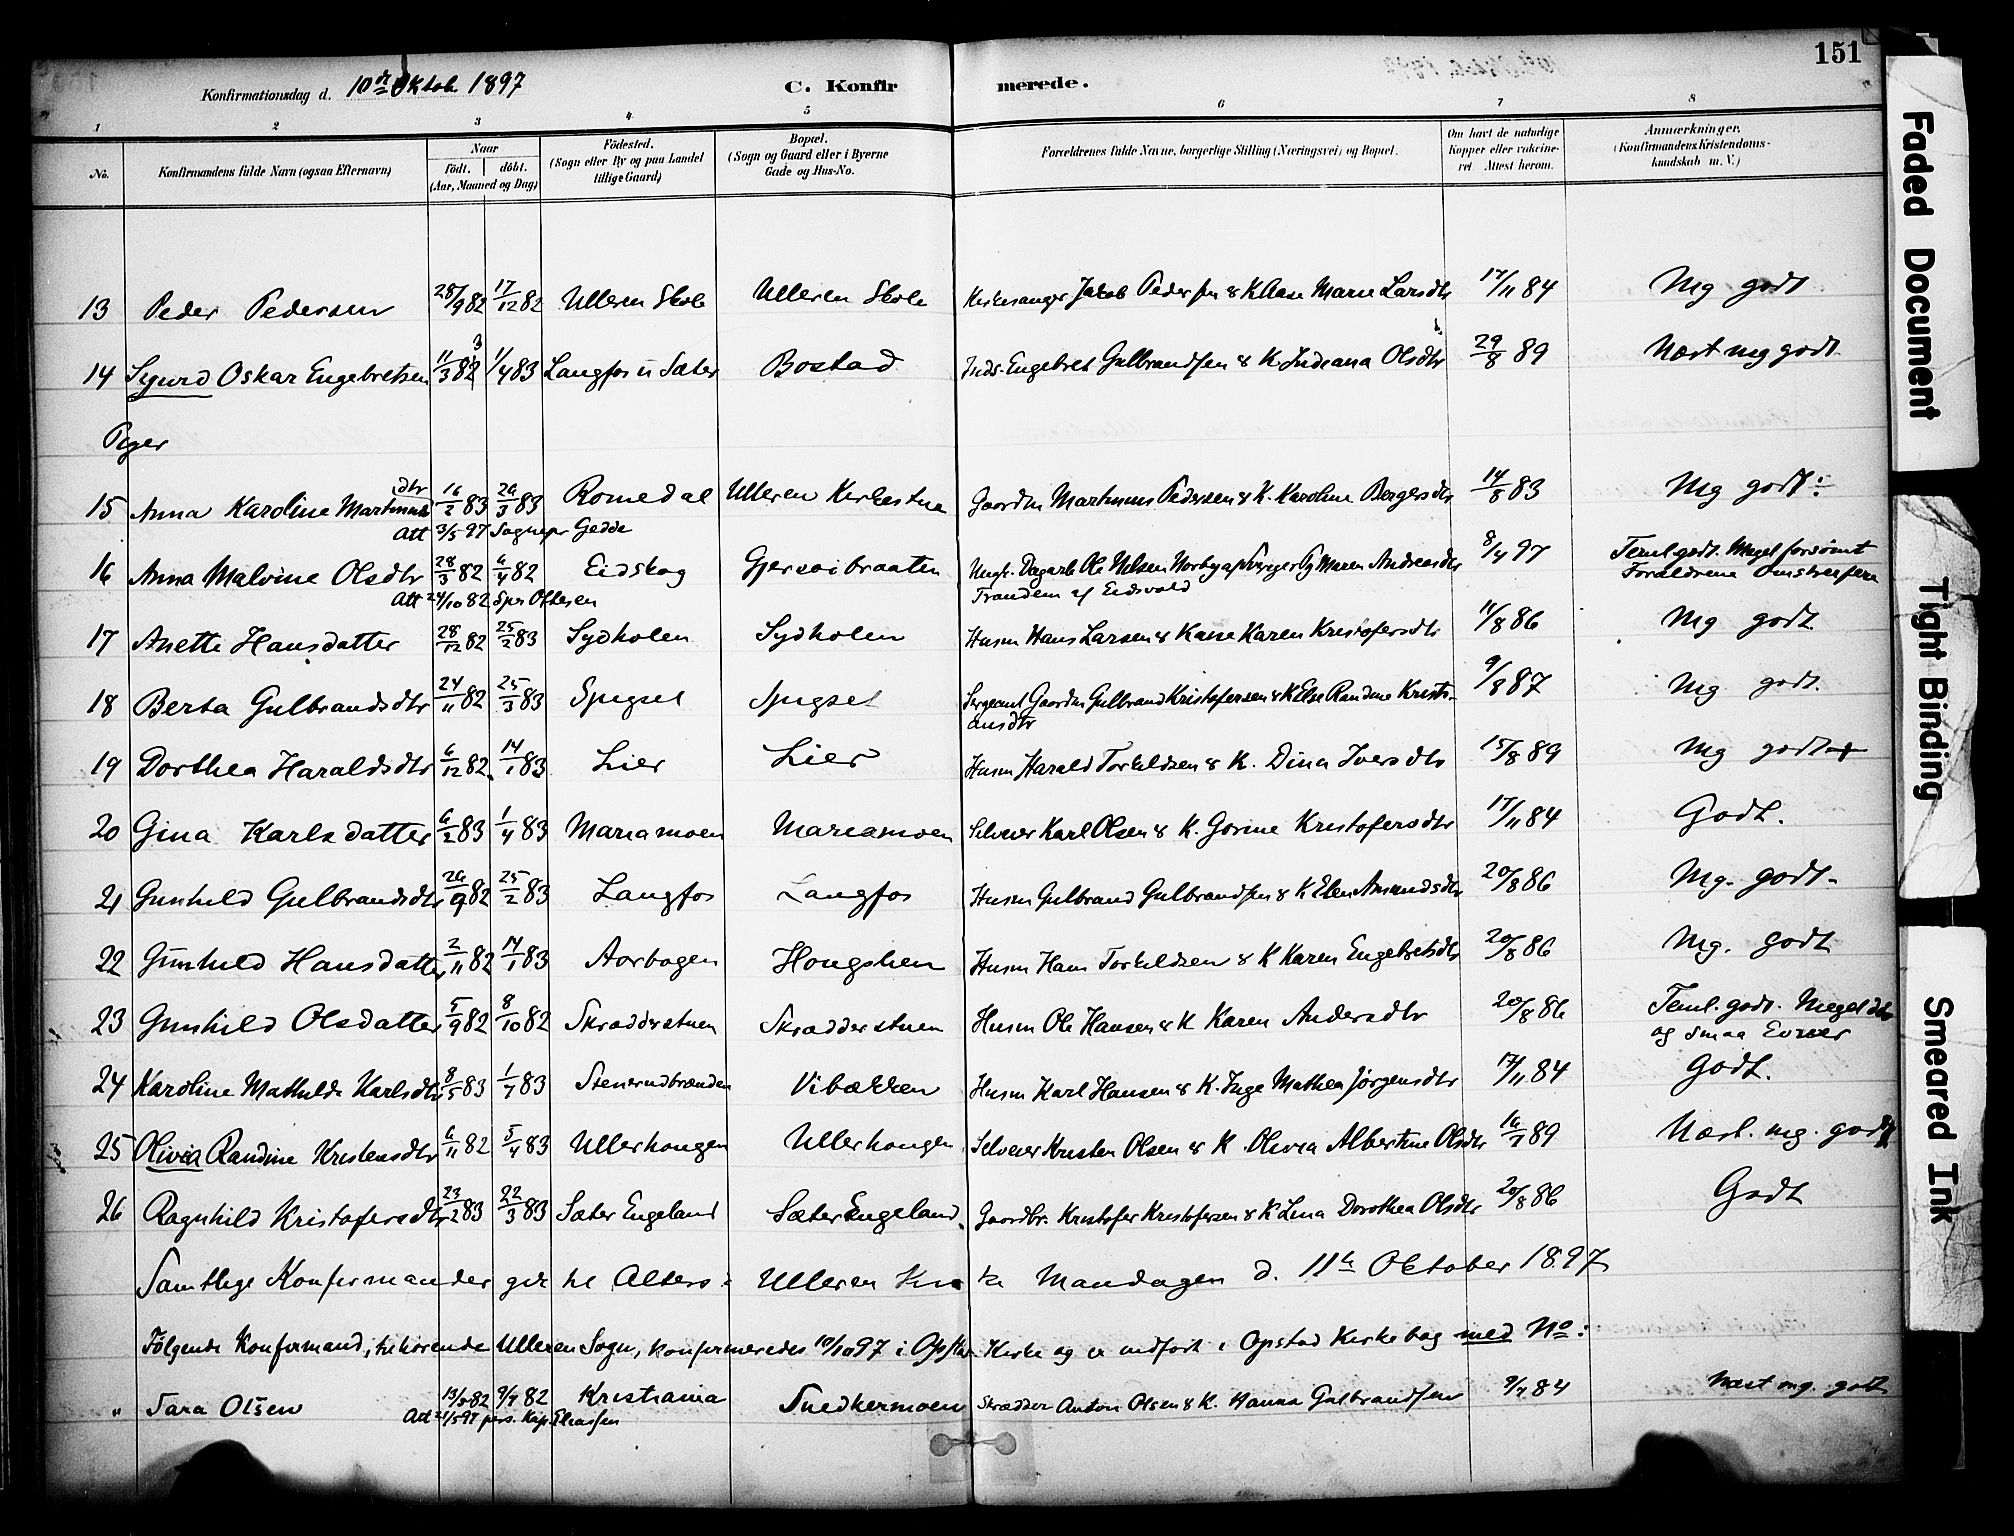 151
Konfirmationsdag d. 10de Oktob. 1897 C. Konfirmerede.
1 2 3 4 5 6 7 8
No. Konfirmandens fulde Navn (ogsaa Efternavn) Naar født. døbt. (Aar, Maaned og Dag) Fødested. (Sogn eller By og paa Landet tillige Gaard) Bopæl. (Sogn og Gaard eller i Byerne Gade og Hus-No. Forældrenes fulde Navne, borgerlige Stilling (Næringsvei) og Bopæl. Om havt de naturlige Kopper eller vakcineret. Attest herom. Anmærkninger. (Konfirmandens Kristendomskundskab m. V.)
13 Peder Pedersen 28/9 82 17/12 82 Ulleren Skole Ulleren Skole Kirkesanger Jakob Pedersen & K Aase Marie Larsdtr 17/11 84 Mg godt
14 Sigurd Oskar Engebretsen 11/3 83 1/4 83 Langfos u Sæter Bostad Inds. Engebret Gulbrandsen & K. Indiana Olsdtr 29/8 89 Næst mg godt
Piger
15 Anna Karoline Martinusdtr 16/2 83 26/3 83 Romedal Ulleren Kirkestue Gaardm Martinus Pedersen & K. Karoline Bergersdtr 14/8 83 Mg godt
Att 3/5 97 Sognepr Gedde
16 Anna Malvine Olsdtr 28/3 82 6/4 82 Eidskog Gjersoibraaten Ungk. Dagarb Ole Nilsen Norby af Sverige Pg Maren Andreasdtr 8/4 97 Teml. godt. Meget forsømt
Trandem af Eidsvold Forældrene Omstreifere
Att 24/10 82 Spr Ottesen
17 Anette Hansdatter 28/12 82 25/2 83 Sydholen Sydholen Husm Hans Larsen & Kone Karen Kristofersdtr 11/8 86 Mg godt
18 Berta Gulbrandsdtr 24/11 82 25/3 83 Spigset Spigset Sergeant Gaardm Gulbrand Kristofersen & K Else Randine Kristi-
ansdtr 9/8 87 Mg godt.
19 Dorthea Haraldsdtr 6/12 82 14/1 83 Lier Lier Husm Harald Torkildsen & K. Dina Iversdtr 15/8 89 Mg godt
20 Gina Karlsdatter 6/2 83 1/4 83 Mariamoen Mariamoen Selveier Karl Olsen & K. Gorine Kristofersdtr 17/11 84 Godt.
21 Gunhild Gulbrandsdtr 26/9 82 25/2 83 Langfos Langfos Husm Gulbrand Gulbrandsen & K Elen Amundsdtr 20/8 86 Mg. godt
22 Gunhild Hansdatter 2/11 82 14/1 83 Aorbogen Hongshen Husm Hans Torkildsen & K Karen Engebretsdtr 20/8 86 Mg. godt
23 Gunhild Olsdatter 5/9 82 8/10 82 Skradderstuen Skradderstuen Husm Ole Hansen & K Karen Andersdtr 20/8 86 Teml. godt. Meget
og smaa Evner
24 Karoline Mathilde Karlsdtr 8/5 83 1/7 83 Stenerudbrænden Vibækken Husm Karl Hansen & K. Inge Mathea Jørgensdtr 17/11 84 Godt.
25 Olivia Randine Kristensdtr 6/11 82 5/4 83 Ullerhougen Ullerhougen Selveier Kristen Olsen & K. Olivia Albertine Olsdtr 16/7 89 Næst. mg. godt
26 Ragnhild Kristofersdtr 23/2 83 22/3 83 Sæter Engeland Sæter Engeland Gaardbr. Kristofer Kristofersen & K Lina Dorothea Olsdtr 20/8 86 Godt
Samtlige Konfirmander gik til Alters i Ulleren Kirke Mandagen d. 11te Oktober 1897
Følgende Konfirmand, tilhørende Ulleren Sogn, konfirmeredes 10/10 97 i Opstad Kirke og er indført i Opstad Kirkebog med No:
" Sara Olsen 13/2 82 9/4 82 Kristiania Snedkermoen Skrædder Anton Olsen & K. Hanna Gulbrandsen 9/7 84 Næst mg. godt
Att 21/5 97 pers. Kap. Eliassen
Faded Document
Tight Binding
Smeared Ink